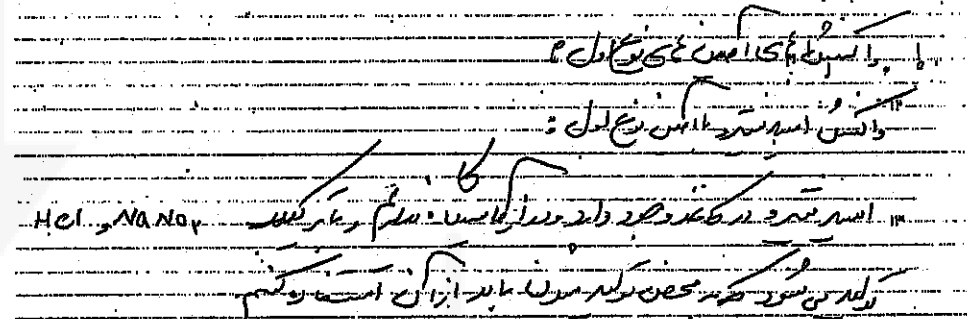 واکنش های آمین های نوع اول :
واکنش اسید نیترو با آمین نوع اول :
اسید نیترو در کاغذ وجود دارد ودر آزمایشگاه نداریم و با ترکیب HCl و NaNO₂
تولید می شود که به محض تولید شدن باید از آن استفاده کنیم